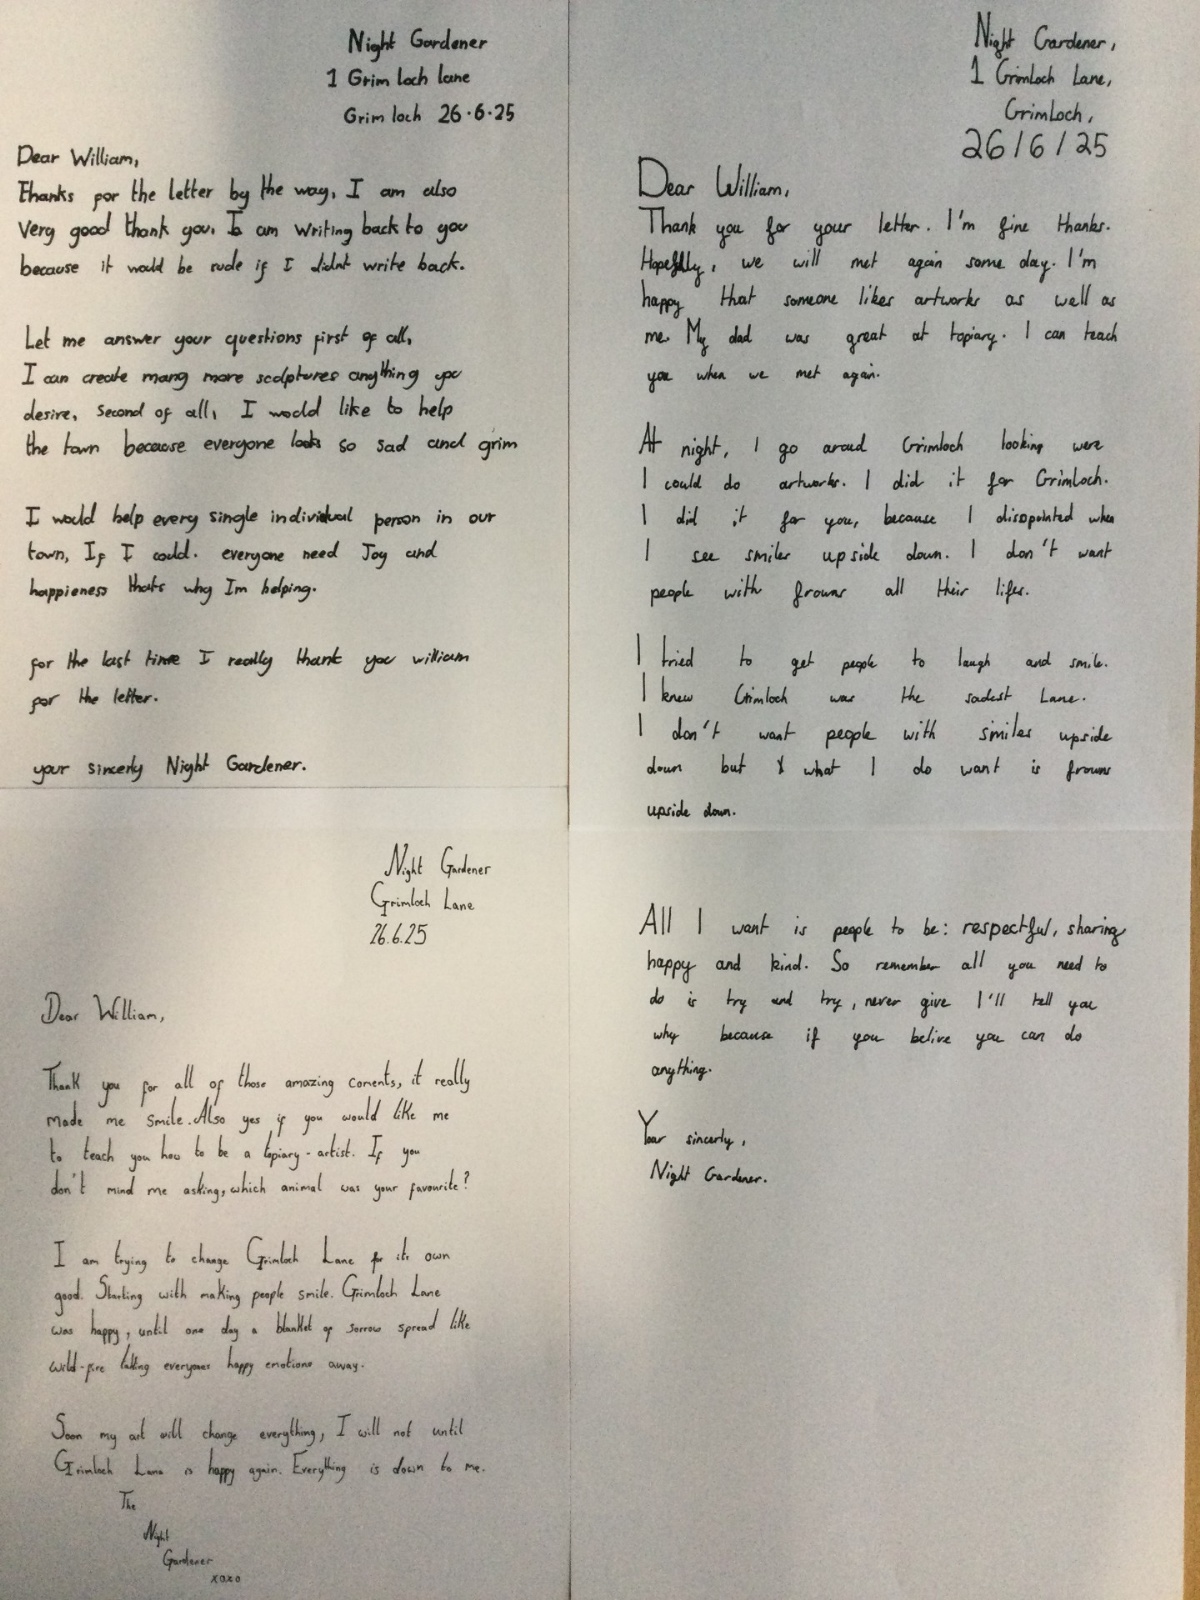 Night Gardener
1 Grim loch lane
Grim loch 26.6.25
Dear William,
Thanks for the letter by the way, I am also
very good thank you. I am writing back to you
because it would be rude if I didnt write back.
Let me answer your questions first of all,
I can create many more scolptures anything you
desire, second of all, I would like to help
the town because everyone looks so sad and grim
I would help every single individual person in our
town, If I could. everyone need Joy and
happieness thats why Im helping.
for the last time I really thank you william
for the letter.
your sincerly Night Gardener.
Night Gardener,
1 Grimloch Lane,
Grimloch,
26/6/25
Dear William,
Thank you for your letter. I'm fine thanks.
Hopeflly, we will met again some day. I'm
happy that someone likes artworks as well as
me. My dad was great at topiary. I can teach
you when we met again.
At night, I go aroud Grimloch looking were
I could do artworks. I did it for Grimloch.
I did it for you, because I disopointed when
I see smiles upside down. I don't want
people with frowns all their lifes.
I tried to get people to laugh and smile.
I knew Grimloch was the sadest Lane.
I don't want people with smiles upside
down but what I do want is frowns
upside down.
All I want is people to be: respectful, sharing
happy and kind. So remember all you need to
do is try and try, never give I'll tell you
why because if you belive you can do
anything.
Your sincerly,
Night Gardener.
Night Gardener
Grimloch Lane
26.6.25
Dear William,
Thank you for all of those amazing coments, it really
made me smile. Also yes if you would like me
to teach you how to be a topiary-artist. If you
don't mind me asking, which animal was your favourite?
I am trying to change Grimloch Lane for its own
good. Starting with making people smile. Grimloch Lane
was happy, until one day a blanket of sorrow spread like
wild-fire takking everyones happy emotions away.
Soon my art will change everything, I will not until
Grimloch Lane is happy again. Everything is down to me.
The
Night
Gardener
xoxo